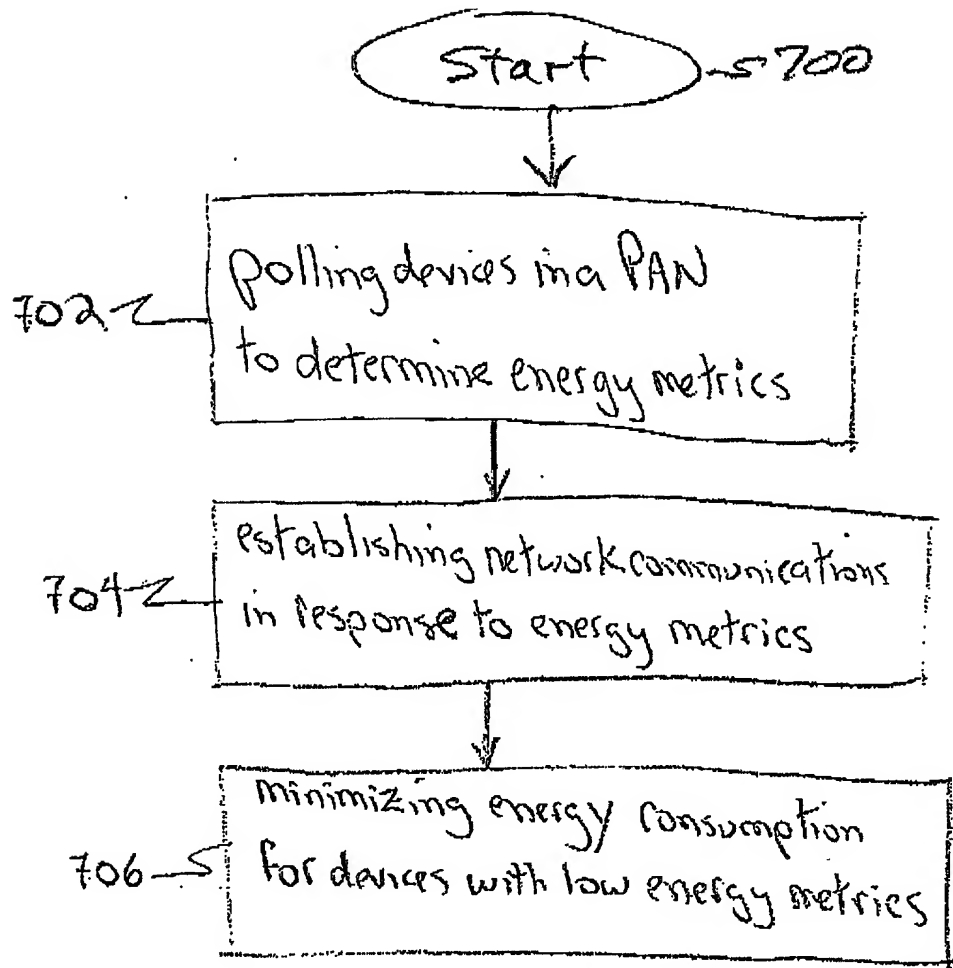 Start 700
702
polling devices in a PAN
to determine energy metrics
704
establishing network communications
in response to energy metrics
706
minimizing energy consumption
for devices with low energy metrics